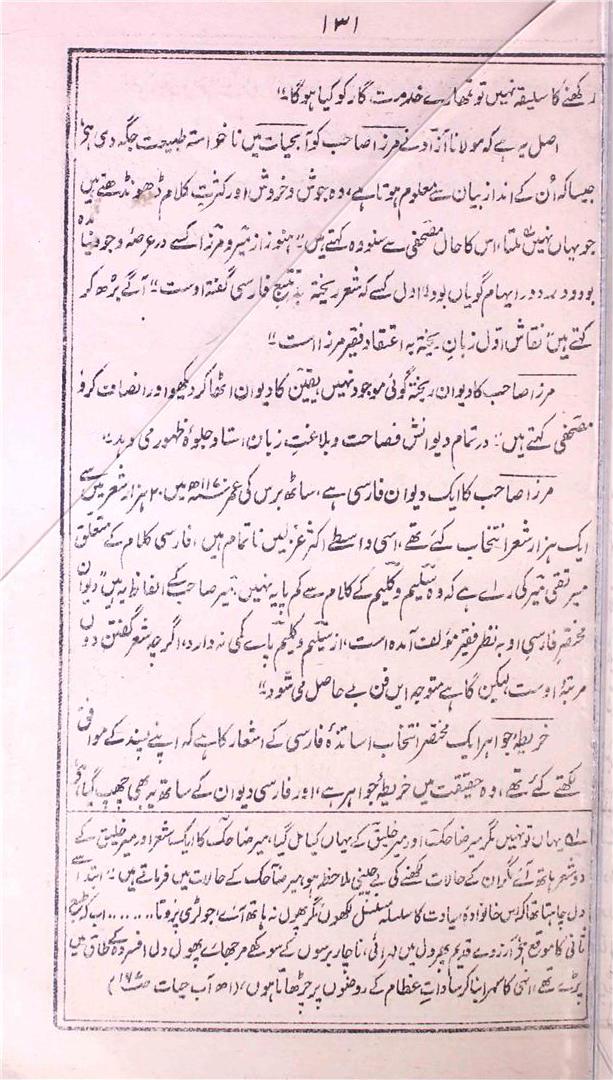 ۱۳۱
رکھنے کا سلیقہ نہیں تو تمھارے خدمت گار کو کیا ہو گا"
اصل یہ ہے کہ مولانا آزاد نے مرزا صاحب کو آبحیات میں ناخواستہ طبیعت جگہ دی ہے
جیسا کہ اُن کے انداز بیان سے معلوم ہوتا ہے، وہ جوش و خروش اور کثرتِ کلام ڈھونڈھتے ہیں
جو یہاں نہیں ملتا، اس کا حال مصحفی سے سنو وہ کہتے ہیں "ہنوز از میر و مرزا کسے در عرصۂ وجود نیا مدہ
بود و در دور ایہام گویاں بود اول کسے کہ شعر ریختہ بہ تتبع فارسی گفتہ اوست" آگے بڑھ کر
کہتے ہیں "نقاش اوّل زبان ریختہ بہ اعتقاد فقیر مرزا است"
مرزا صاحب کا دیوان ریختہ گوئی موجود نہیں یقین کا دیوان اٹھا کر دیکھو اور انصاف کرو
مصحفی کہتے ہیں "در تمام دیوانش فصاحت و بلاغتِ زبان استاد جلوۂ ظہور می دہد"
مرزا صاحب کا ایک دیوان فارسی ہے، ساٹھ برس کی عمر ۱۱۷۰ھ میں ۲۰ ہزار شعر میں سے
ایک ہزار شعر انتخاب کئے تھے، اسی واسطے اکثر غزلیں ناتمام ہیں، فارسی کلام کے متعلق
میر تقی میر کی رائے ہے کہ وہ سلیم و کلیم کے کلام سے کم پایہ نہیں، میر صاحب کے الفاظ یہ ہیں "دیوان
مختصر فارسی او بہ نظر فقیر مؤلف آمدہ است، از سلیم و کلیم پاے کمی نہ دارد، اگرچہ شعر گفتن دون
مرتبۂ اوست لیکن گاہے متوجہ ایں فن بے حاصل می شود"
خریطۂ جواہر ایک مختصر انتخاب اساتذۂ فارسی کے اشعار کا ہے کہ اپنے پسند کے موافق
لکھتے گئے تھے، وہ حقیقت میں خریطۂ جواہر ہے، اور فارسی دیوان کے ساتھ یہ بھی چھپ گیا ہے
لہ یہاں تو نہیں مگر میر ضاحک اور میر خلیق کے یہاں کیا مل گیا، میر ضاحک کا ایک شعر اور میر خلیق کے
دو شعر ہاتھ آئے مگر ان کے حالات لکھنے کی بے چینی ملاحظہ ہو، میر ضاحک کے حالات میں فرماتے ہیں "ابتدا سے
دل چاہتا تھا کہ اس خانوادۂ سیادت کا سلسلہ مسلسل لکھوں مگر پھول نہ ہاتھ آئے، جو لڑی پروتا ....... اب کہ طبع
ثانی کا موقع آرزوے قدیم پھر دل میں لہرائی، ناچار برسوں کے سوکھے مرجھائے پھول دل افسردہ کے طاق میں
پڑے تھے، انہی کا سہرا بنا کر سادات عظام کے روضوں پر چڑھاتا ہوں، (اھ آب حیات